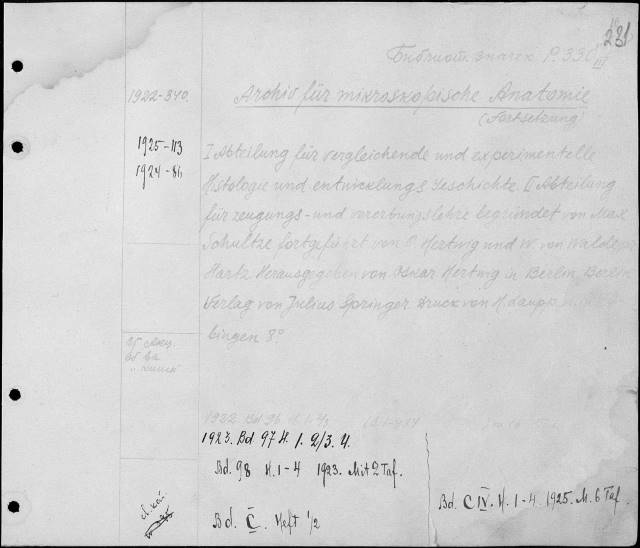 231
Библиот. значек P.330 III
1922-340.
Archiv für mikroskopische Anatomie
(Fortsetzung)
1925-113
1924-86
I Abteilung für vergleichende und experimentelle
Histologie und entwicklungs geschichte II Abteilung
für zeugungs- und vererbungslehre begründet von Max
Schultze fortgeführt von O. Hertwig und W. von Waldeyer
Hartz Herausgegeben von Oskar Hertwig in Berlin. Berlin
Verlag von Julius Springer Druck von H. Laupp
bingen 8°
1922 Bd 96 H. 1-4
1923. Bd. 97 H. 1. 2/3. 4.
Bd. 98 H. 1-4 1923. Mit 2 Taf.
Bd. C. Heft 1/2
Bd. CIV. H. 1-4. 1925. M. 6 Taf.